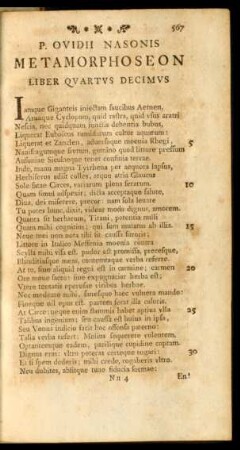 567
P. OVIDII NASONIS
METAMORPHOSEON
LIBER QVARTVS DECIMVS
Iamque Giganteis iniectam faucibus Aetnen,
Aruaque Cyclopum, quid rastra, quid vsus aratri
Nescia, nec quidquam iunctis debentia bubus,
Liquerat Euboicus tumidarum cultor aquarum:
Liquerat et Zanclen, aduersaque moenia Rhegi, 5
Nauifragumque fretum, gemino quod littore pressum
Ausoniae Siculaeque tenet confinia terrae.
Inde, manu magna Tyrrhena per aequora lapsus,
Herbiferos adiit colles, atque atria Glaucus
Solis satae Circes, variarum plena ferarum. 10
Quam simul adspexit; dicta acceptaque salute,
Diua, dei miserere, precor: nam sola leuare
Tu potes hunc, dixit, videar modo dignus, amorem.
Quanta sit herbarum, Titani, potentia nulli
Quam mihi cognitius; qui sum mutatus ab illis. 15
Neue mei non nota tibi sit caussa furoris;
Littore in Italico Messenia moenia contra
Scylla mihi visa est. pudor est promissa, precesque,
Blanditiasque meas, contemtaque verba referre.
At tu, siue aliquid regni est in carmine; carmen 20
Ore moue sacro: siue expugnacior herba est;
Vtere tentatis operosae viribus herbae.
Nec medeare mihi, sanesque haec vulnera mando:
Fineque nil opus est. partem ferat illa caloris.
At Circe: neque enim flammis habet aptius vlla 25
Talibus ingenium; seu caussa est huius in ipsa,
Seu Venus indicio facit hoc offensa paterno:
Talia verba refert: Melius sequerere volentem,
Optantemque eadem, parilique cupidine captam.
Dignus eras: vltro poteras certeque rogari: 30
Et si spem dederis; mihi crede, rogaberis vltro.
Neu dubites, absitque tuae fiducia formae:
Nn 4 En!